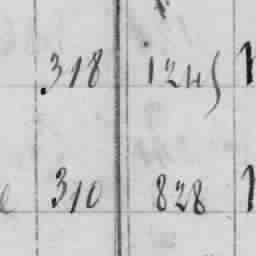 318 1245
310 828